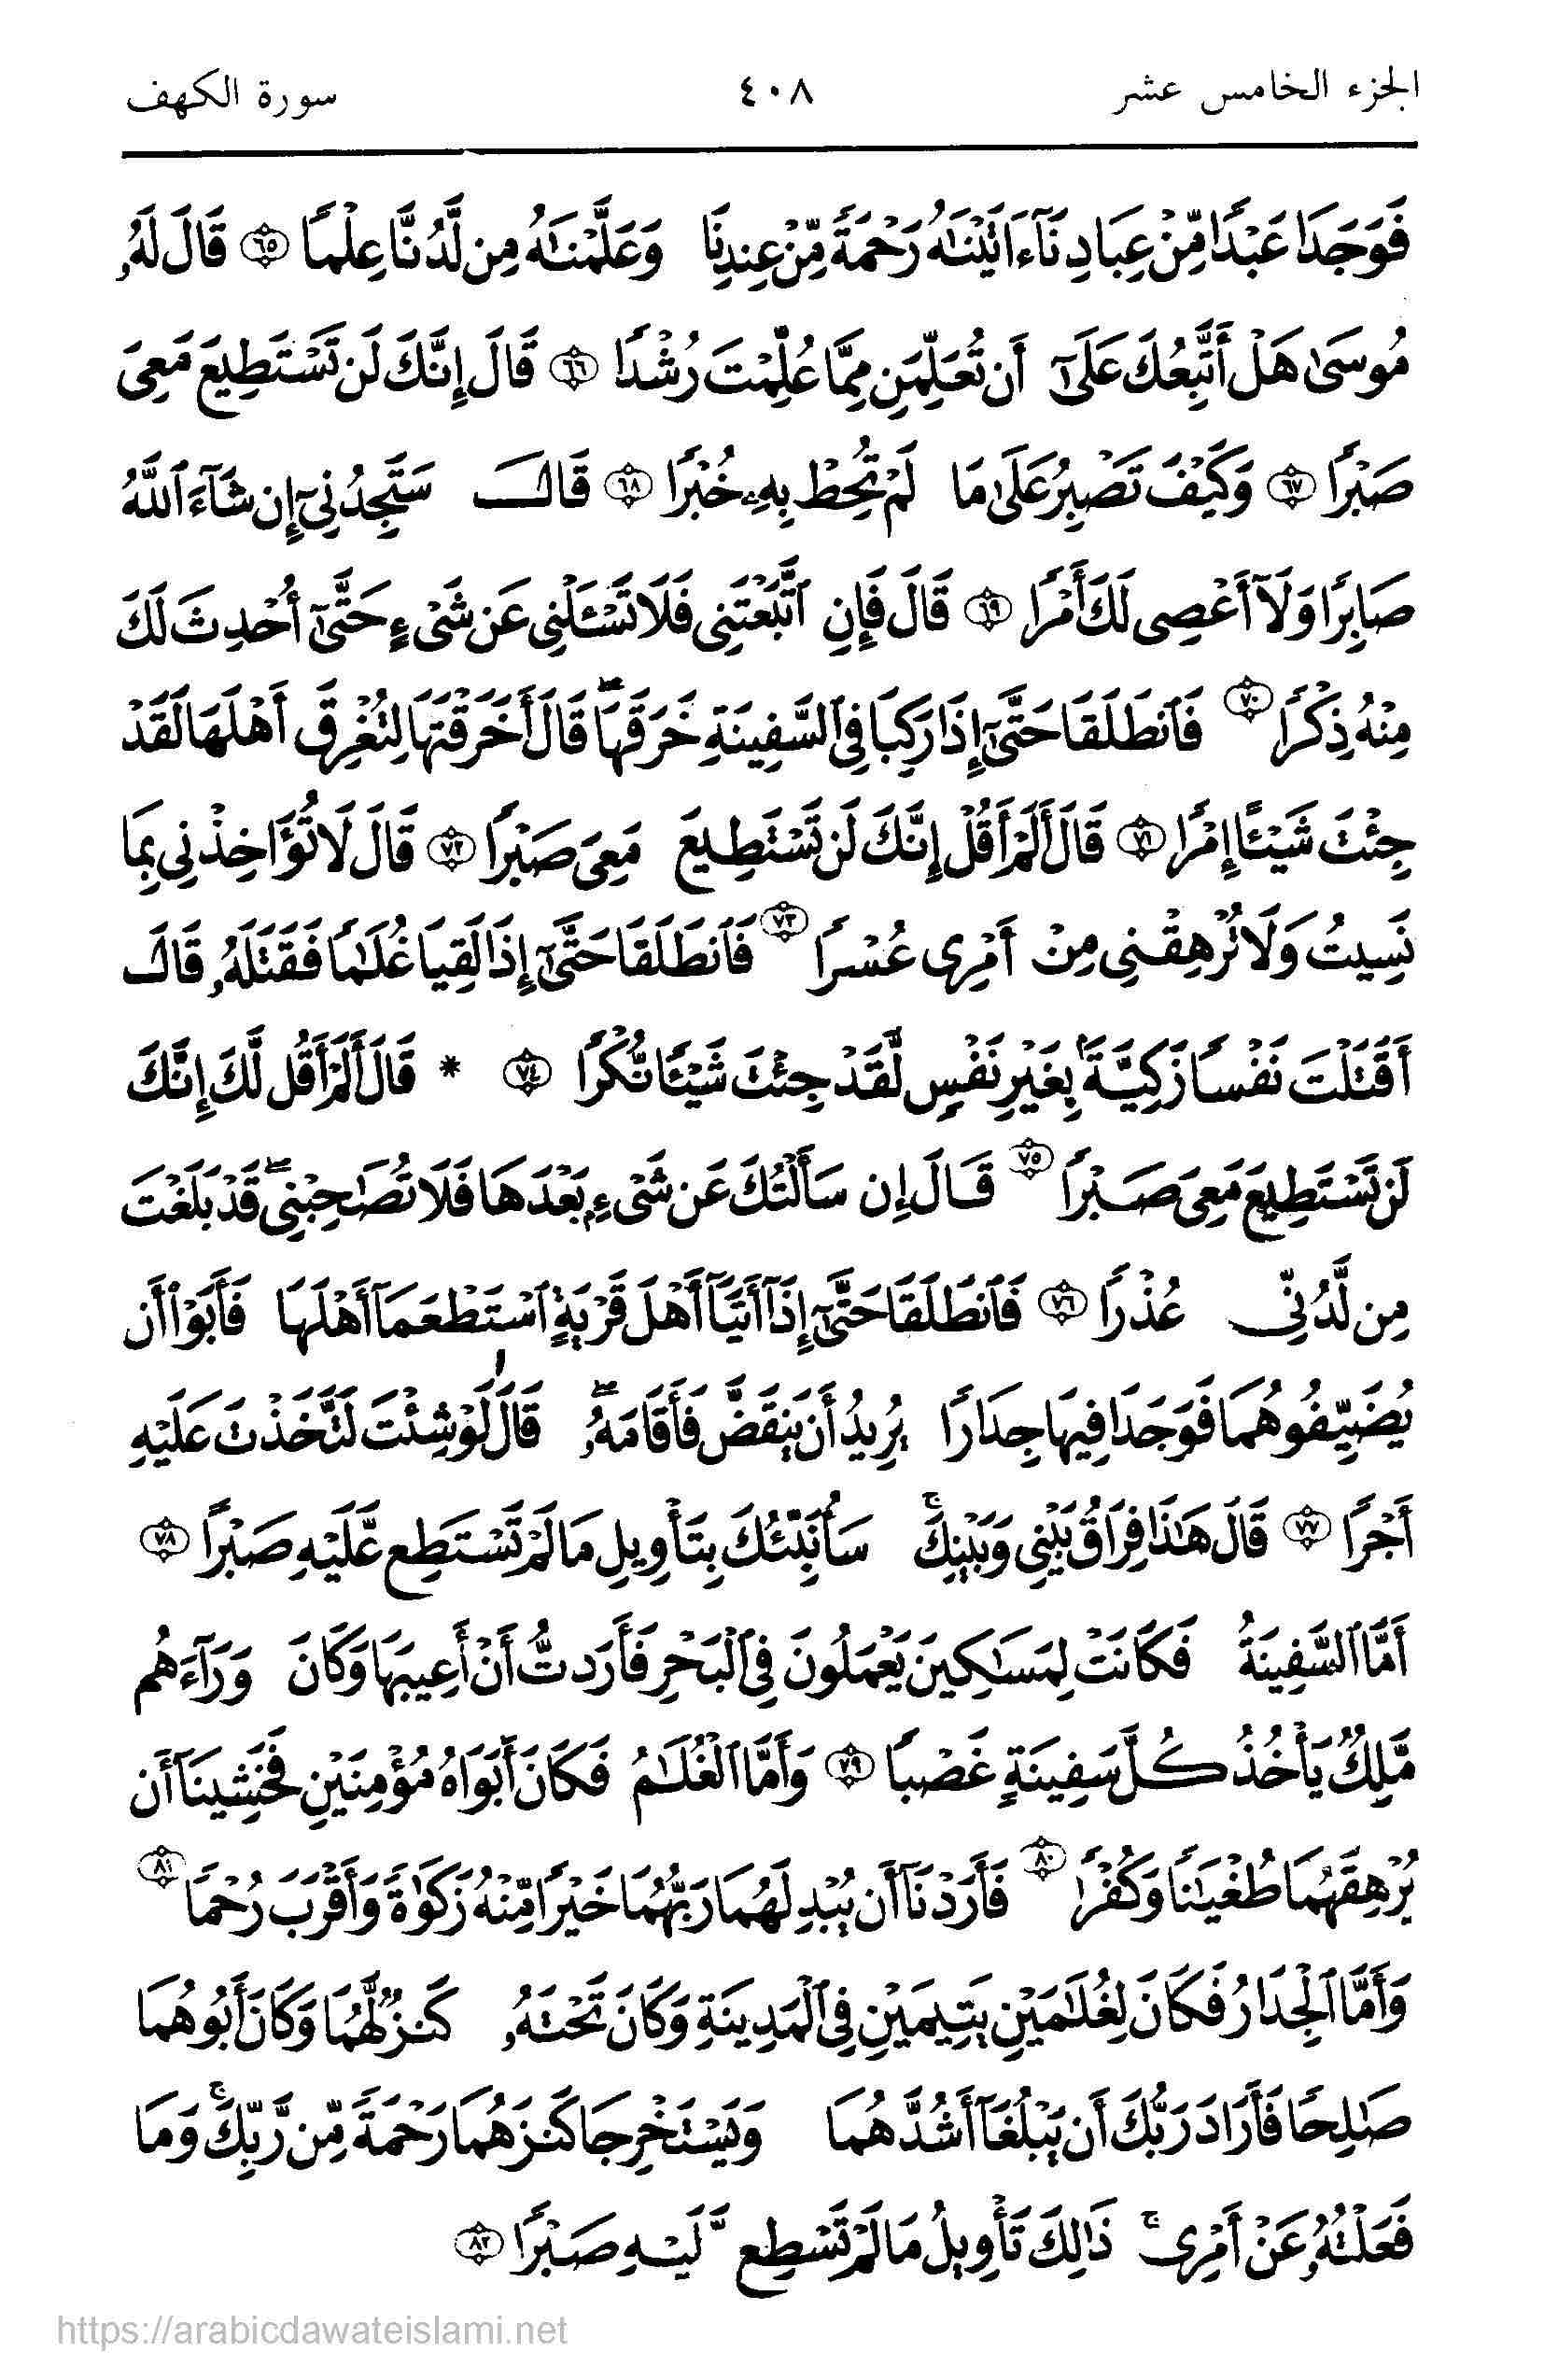 الجزء الخامس عشر ٤٠٨ سورة الكهف
فَوَجَدَا عَبْدًا مِّنْ عِبَادِنَآ ءَاتَيْنَٰهُ رَحْمَةً مِّنْ عِندِنَا وَعَلَّمْنَٰهُ مِن لَّدُنَّا عِلْمًا ٦٥ قَالَ لَهُۥ
مُوسَىٰ هَلْ أَتَّبِعُكَ عَلَىٰٓ أَن تُعَلِّمَنِ مِمَّا عُلِّمْتَ رُشْدًا ٦٦ قَالَ إِنَّكَ لَن تَسْتَطِيعَ مَعِىَ
صَبْرًا ٦٧ وَكَيْفَ تَصْبِرُ عَلَىٰ مَا لَمْ تُحِطْ بِهِۦ خُبْرًا ٦٨ قَالَ سَتَجِدُنِىٓ إِن شَآءَ ٱللَّهُ
صَابِرًا وَلَآ أَعْصِى لَكَ أَمْرًا ٦٩ قَالَ فَإِنِ ٱتَّبَعْتَنِى فَلَا تَسْـَٔلْنِى عَن شَىْءٍ حَتَّىٰٓ أُحْدِثَ لَكَ
مِنْهُ ذِكْرًا ٧٠ فَٱنطَلَقَا حَتَّىٰٓ إِذَا رَكِبَا فِى ٱلسَّفِينَةِ خَرَقَهَا ۖ قَالَ أَخَرَقْتَهَا لِتُغْرِقَ أَهْلَهَا لَقَدْ
جِئْتَ شَيْـًٔا إِمْرًا ٧١ قَالَ أَلَمْ أَقُلْ إِنَّكَ لَن تَسْتَطِيعَ مَعِىَ صَبْرًا ٧٢ قَالَ لَا تُؤَاخِذْنِى بِمَا
نَسِيتُ وَلَا تُرْهِقْنِى مِنْ أَمْرِى عُسْرًا ٧٣ فَٱنطَلَقَا حَتَّىٰٓ إِذَا لَقِيَا غُلَٰمًا فَقَتَلَهُۥ قَالَ
أَقَتَلْتَ نَفْسًا زَكِيَّةًۢ بِغَيْرِ نَفْسٍ لَّقَدْ جِئْتَ شَيْـًٔا نُّكْرًا ٧٤ * قَالَ أَلَمْ أَقُل لَّكَ إِنَّكَ
لَن تَسْتَطِيعَ مَعِىَ صَبْرًا ٧٥ قَالَ إِن سَأَلْتُكَ عَن شَىْءٍۭ بَعْدَهَا فَلَا تُصَٰحِبْنِى ۖ قَدْ بَلَغْتَ
مِن لَّدُنِّى عُذْرًا ٧٦ فَٱنطَلَقَا حَتَّىٰٓ إِذَآ أَتَيَآ أَهْلَ قَرْيَةٍ ٱسْتَطْعَمَآ أَهْلَهَا فَأَبَوْا۟ أَن
يُضَيِّفُوهُمَا فَوَجَدَا فِيهَا جِدَارًا يُرِيدُ أَن يَنقَضَّ فَأَقَامَهُۥ ۖ قَالَ لَوْ شِئْتَ لَتَّخَذْتَ عَلَيْهِ
أَجْرًا ٧٧ قَالَ هَٰذَا فِرَاقُ بَيْنِى وَبَيْنِكَ ۚ سَأُنَبِّئُكَ بِتَأْوِيلِ مَا لَمْ تَسْتَطِع عَّلَيْهِ صَبْرًا ٧٨
أَمَّا ٱلسَّفِينَةُ فَكَانَتْ لِمَسَٰكِينَ يَعْمَلُونَ فِى ٱلْبَحْرِ فَأَرَدتُّ أَنْ أَعِيبَهَا وَكَانَ وَرَآءَهُم
مَّلِكٌ يَأْخُذُ كُلَّ سَفِينَةٍ غَصْبًا ٧٩ وَأَمَّا ٱلْغُلَٰمُ فَكَانَ أَبَوَاهُ مُؤْمِنَيْنِ فَخَشِينَآ أَن
يُرْهِقَهُمَا طُغْيَٰنًا وَكُفْرًا ٨٠ فَأَرَدْنَآ أَن يُبْدِلَهُمَا رَبُّهُمَا خَيْرًا مِّنْهُ زَكَوٰةً وَأَقْرَبَ رُحْمًا ٨١
وَأَمَّا ٱلْجِدَارُ فَكَانَ لِغُلَٰمَيْنِ يَتِيمَيْنِ فِى ٱلْمَدِينَةِ وَكَانَ تَحْتَهُۥ كَنزٌ لَّهُمَا وَكَانَ أَبُوهُمَا
صَٰلِحًا فَأَرَادَ رَبُّكَ أَن يَبْلُغَآ أَشُدَّهُمَا وَيَسْتَخْرِجَا كَنزَهُمَا رَحْمَةً مِّن رَّبِّكَ ۚ وَمَا
فَعَلْتُهُۥ عَنْ أَمْرِى ۚ ذَٰلِكَ تَأْوِيلُ مَا لَمْ تَسْطِع َّلَيْهِ صَبْرًا ٨٢
https://arabicdawateislami.net